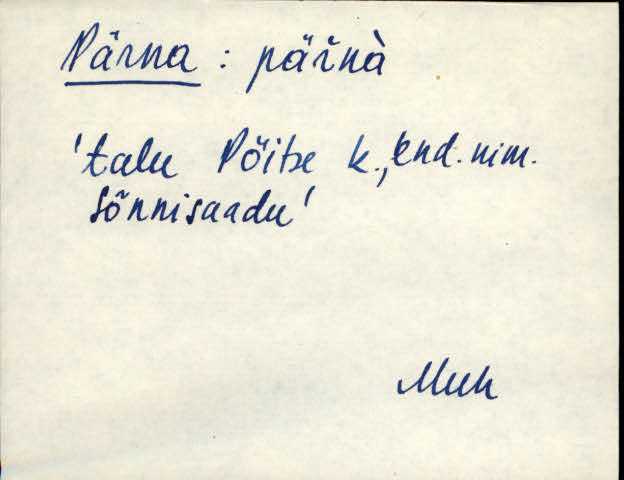 Pärna : päřnà
'talu Põitse k., end. nim.
Sõnnisaadu'
Muh